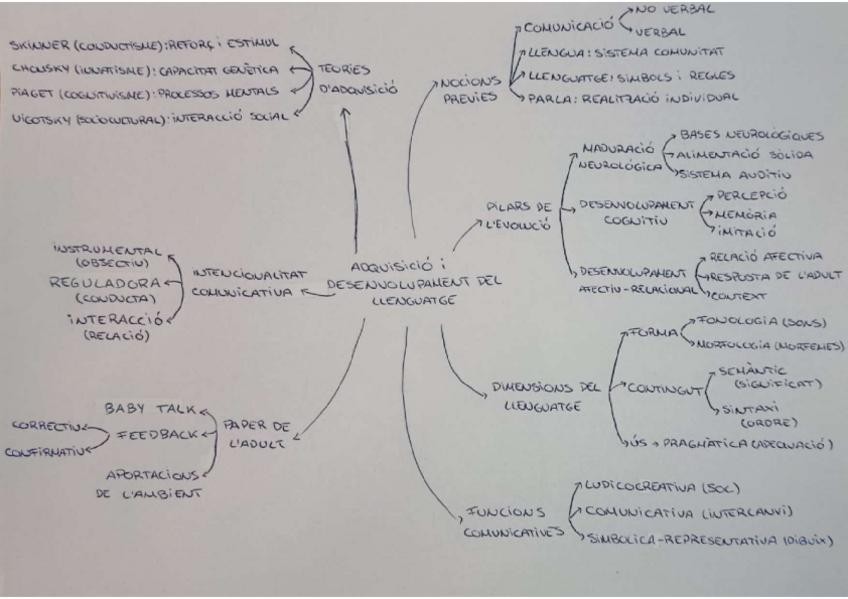 SKINNER (CONDUCTISME): REFORÇ i ESTIMUL
CHOMSKY (INNATISME): CAPACITAT GENÈTICA
PIAGET (COGNITIVISME): PROCESSOS MENTALS
VIGOTSKY (SOCIOCULTURAL): INTERACCIÓ SOCIAL
TEORIES
D'ADQUISICIÓ
NOCIONS
PREVIES
COMUNICACIÓ
NO VERBAL
VERBAL
LLENGUA: SISTEMA COMUNITAT
LLENGUATGE: SIMBOLS i REGLES
PARLA: REALITZACIÓ INDIVIDUAL
PILARS DE
L'EVOLUCIÓ
MADURACIÓ
NEUROLÓGICA
BASES NEUROLÒGIQUES
ALIMENTACIÓ SÒLIDA
SISTEMA AUDITIU
DESENVOLUPAMENT
COGNITIU
PERCEPCIÓ
MEMÒRIA
IMITACIÓ
DESENVOLUPAMENT
AFECTIU-RELACIONAL
RELACIÓ AFECTIVA
RESPOSTA DE L'ADULT
CONTEXT
ADQUISICIÓ i
DESENVOLUPAMENT DEL
LLENGUATGE
INTENCIONALITAT
COMUNICATIVA
INSTRUMENTAL
(OBJECTIU)
REGULADORA
(CONDUCTA)
INTERACCIÓ
(RELACIÓ)
DIMENSIONS DEL
LLENGUATGE
FORMA
FONOLOGIA (SONS)
MORFOLOGIA (MORFEMES)
CONTINGUT
SEMÀNTIC
(SIGNIFICAT)
SINTAXI
(ORDRE)
ÚS → PRAGMÀTICA (ADEQUACIÓ)
PAPER DE
L'ADULT
BABY TALK
FEEDBACK
CORRECTIU
CONFIRMATIU
APORTACIONS
DE L'AMBIENT
FUNCIONS
COMUNICATIVES
LUDICOCREATIVA (JOC)
COMUNICATIVA (INTERCANVI)
SIMBOLICA-REPRESENTATIVA (DIBUIX)